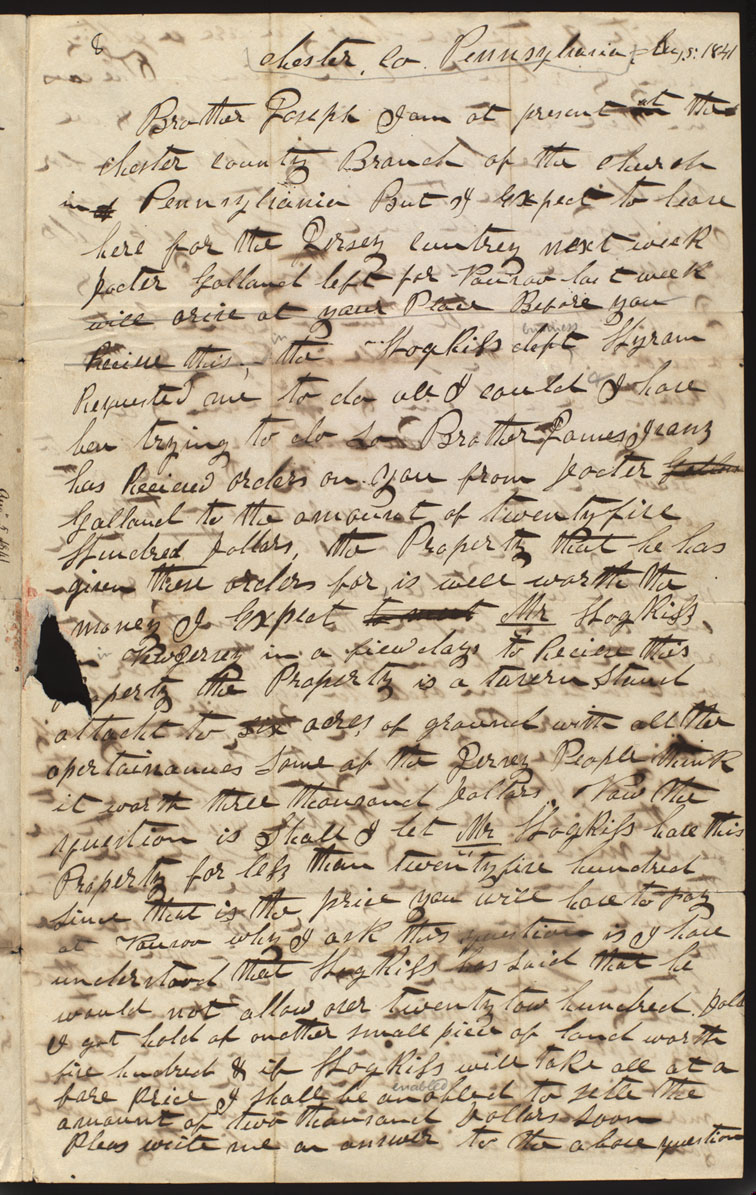 8
Chester, Co. Pennsylvania, Aug 5: 1841
Brother Joseph I am at present at the
Chester county Branch of the church
in of Pennsylvania But I Expect to leave
here for the Jersey countrey next week
Docter Galland left for Nauvoo last week
will arive at your Place Before you
Recieve this, in the Hogkiss business dept Hyram
Requested me to do all I could I have
ben trying to do so Brother James Ivanz
has Recieved orders on you from Docter Gallan
Galland to the amount of twentyfive
Hundred Dollars, the Property that he has
given these orders for, is well worth the
money I Expect to meet Mr Hogkiss,
in NewJersey in a fiew days to Recieve this
Property the Property is a tavern Stand
attacht to six acres of ground with all the
apertainannces Some of the Jersey People think
it worth three thousand Dollars. Now the
question is Shall I let Mr Hogkiss have this
Property for less than twentyfive hundred
Since that is the price you will have to pay
at Nauvoo why I ask this question is I have
understood that Hogkiss has Said that he
would not allow over twenty tow hundred. Doll
I got hold of another small piece of land worth
five hundred & if Hogkiss will take all at a
fare price I shall be anabled enabled to settle the
amount of two thousand Dollars Soon
Pleas write me an answer to the above question
Aug. 5 1841